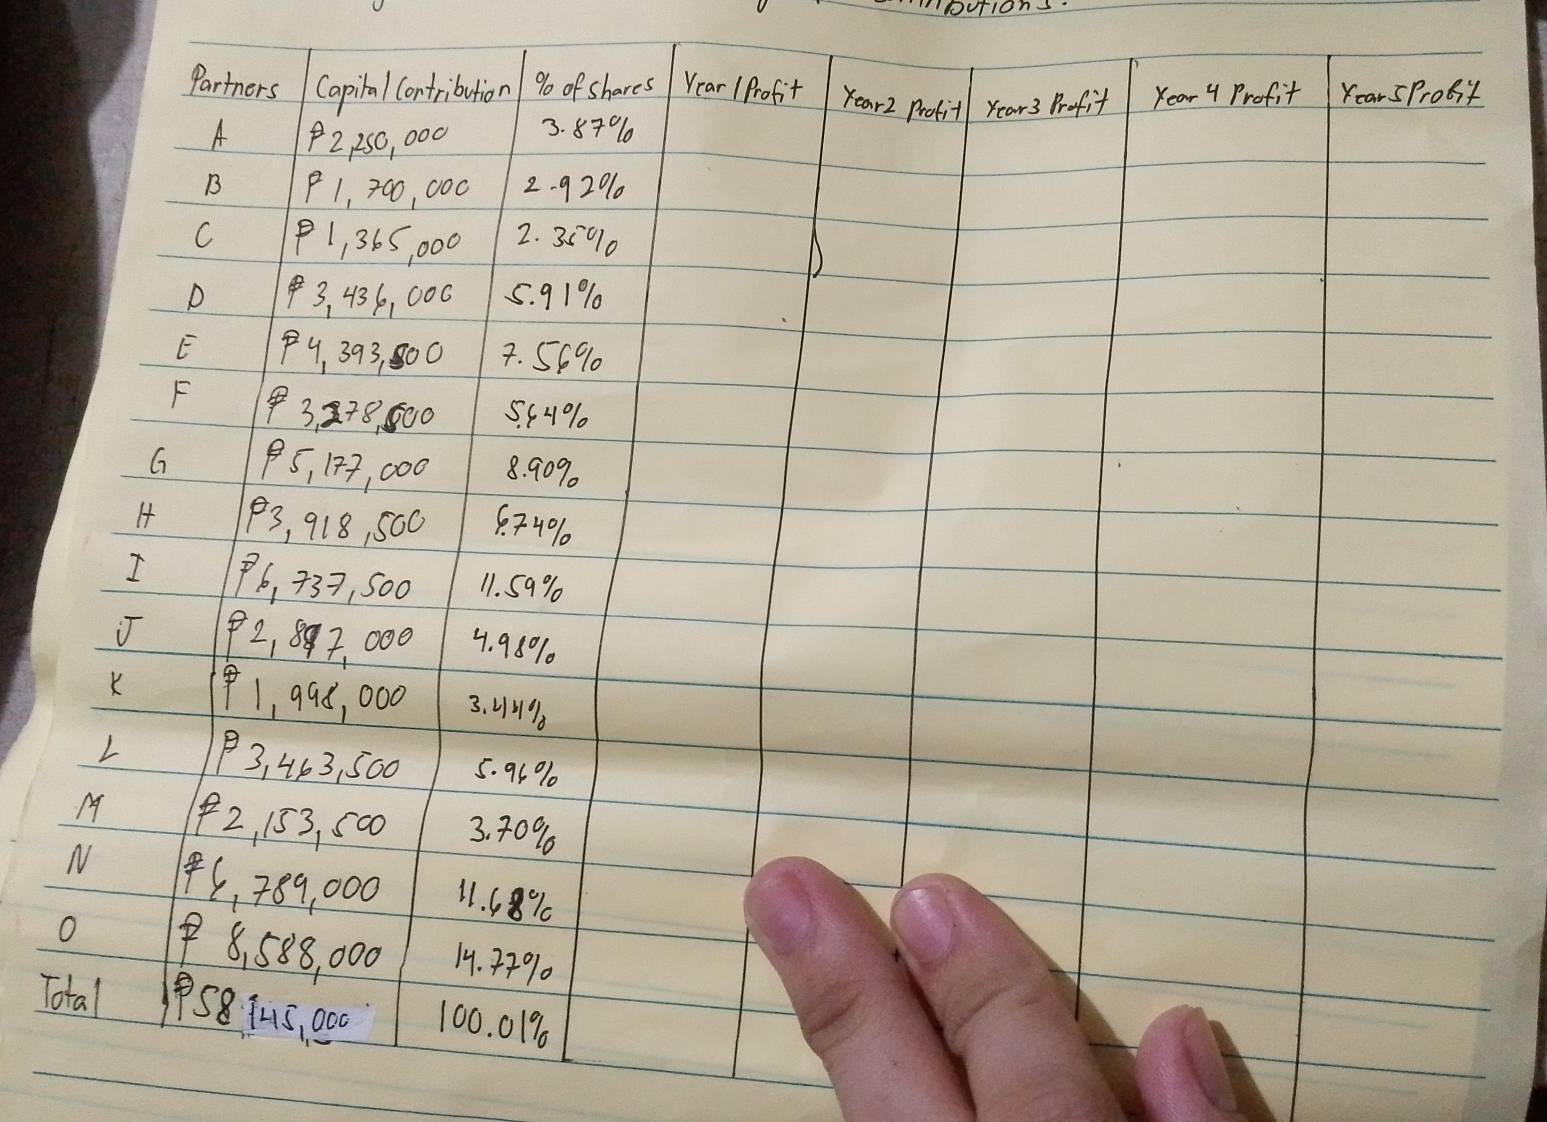 Partners Capital Contribution % of shares Year 1 Profit Year 2 Profit Year 3 Profit Year 4 Profit Year 5 Profit
A ₱2,250,000 3.87%
B ₱1,700,000 2.92%
C ₱1,365,000 2.35%
D ₱3,436,000 5.91%
E ₱4,393,500 7.56%
F ₱3,278,500 5.64%
G ₱5,177,000 8.90%
H ₱3,918,500 6.74%
I ₱6,737,500 11.59%
J ₱2,897,000 4.98%
K ₱1,998,000 3.44%
L ₱3,463,500 5.96%
M ₱2,153,500 3.70%
N ₱6,789,000 11.68%
O ₱8,588,000 14.77%
Total ₱58,145,000 100.01%